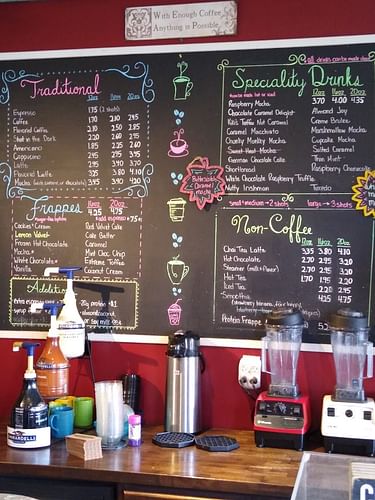 With Enough Coffee
Anything is Possible
all drinks can be made
Traditional
12oz 16oz 20oz
Espresso 1.75 (2 shots)
Coffee 1.70 2.10 2.45
Flavored Coffee 2.10 2.50 2.85
Shot in the Dark 2.20 2.60
Americano 1.85 2.25 2.60
Cappuccino 2.95
Latte
Flavored Latte 3.35 3.80 4.10
Mocha 3.45 3.90 4.20
Specialty Drinks
12oz 16oz 20oz
3.70 4.00 4.35
Raspberry Mocha
Almond Joy
Chocolate Caramel Delight
Creme Brulee
Kit's Toffee Nut Caramel
Marshmallow Mocha
Caramel Macchiato
Cupcake Mocha
Chunky Monkey Mocha
Salted Caramel
Sweet Heat Mocha
Thin Mint
German Chocolate Cake
Raspberry Cheesecake
Shortbread
White Chocolate Raspberry Truffle
Nutty Irishman
Tuxedo
small + medium = 2 shots
large = 3 shots
Butterscotch
Caramel
Mocha
Frappes
16oz 20oz
4.25 4.75
add espresso +.75
Cookies & Cream
Red Velvet Cake
Lemon Velvet
Cake Batter
Frozen Hot Chocolate
Caramel
Mocha
Mint Choc Chip
White Chocolate
Extreme Toffee
Vanilla
Coconut Cream
Non-Coffee
12oz 16oz 20oz
Chai Tea Latte 3.35 3.80 4.10
Hot Chocolate 2.70 2.95 3.20
Steamer (milk + flavor) 2.70 2.95 3.20
Hot Tea 1.70 1.95 2.20
Iced Tea 2.20 2.45
Smoothie 4.25 4.75
Protein Frappe
Additions
Extra espresso
Soy
protein +1
syrup
GHIRARDELLI